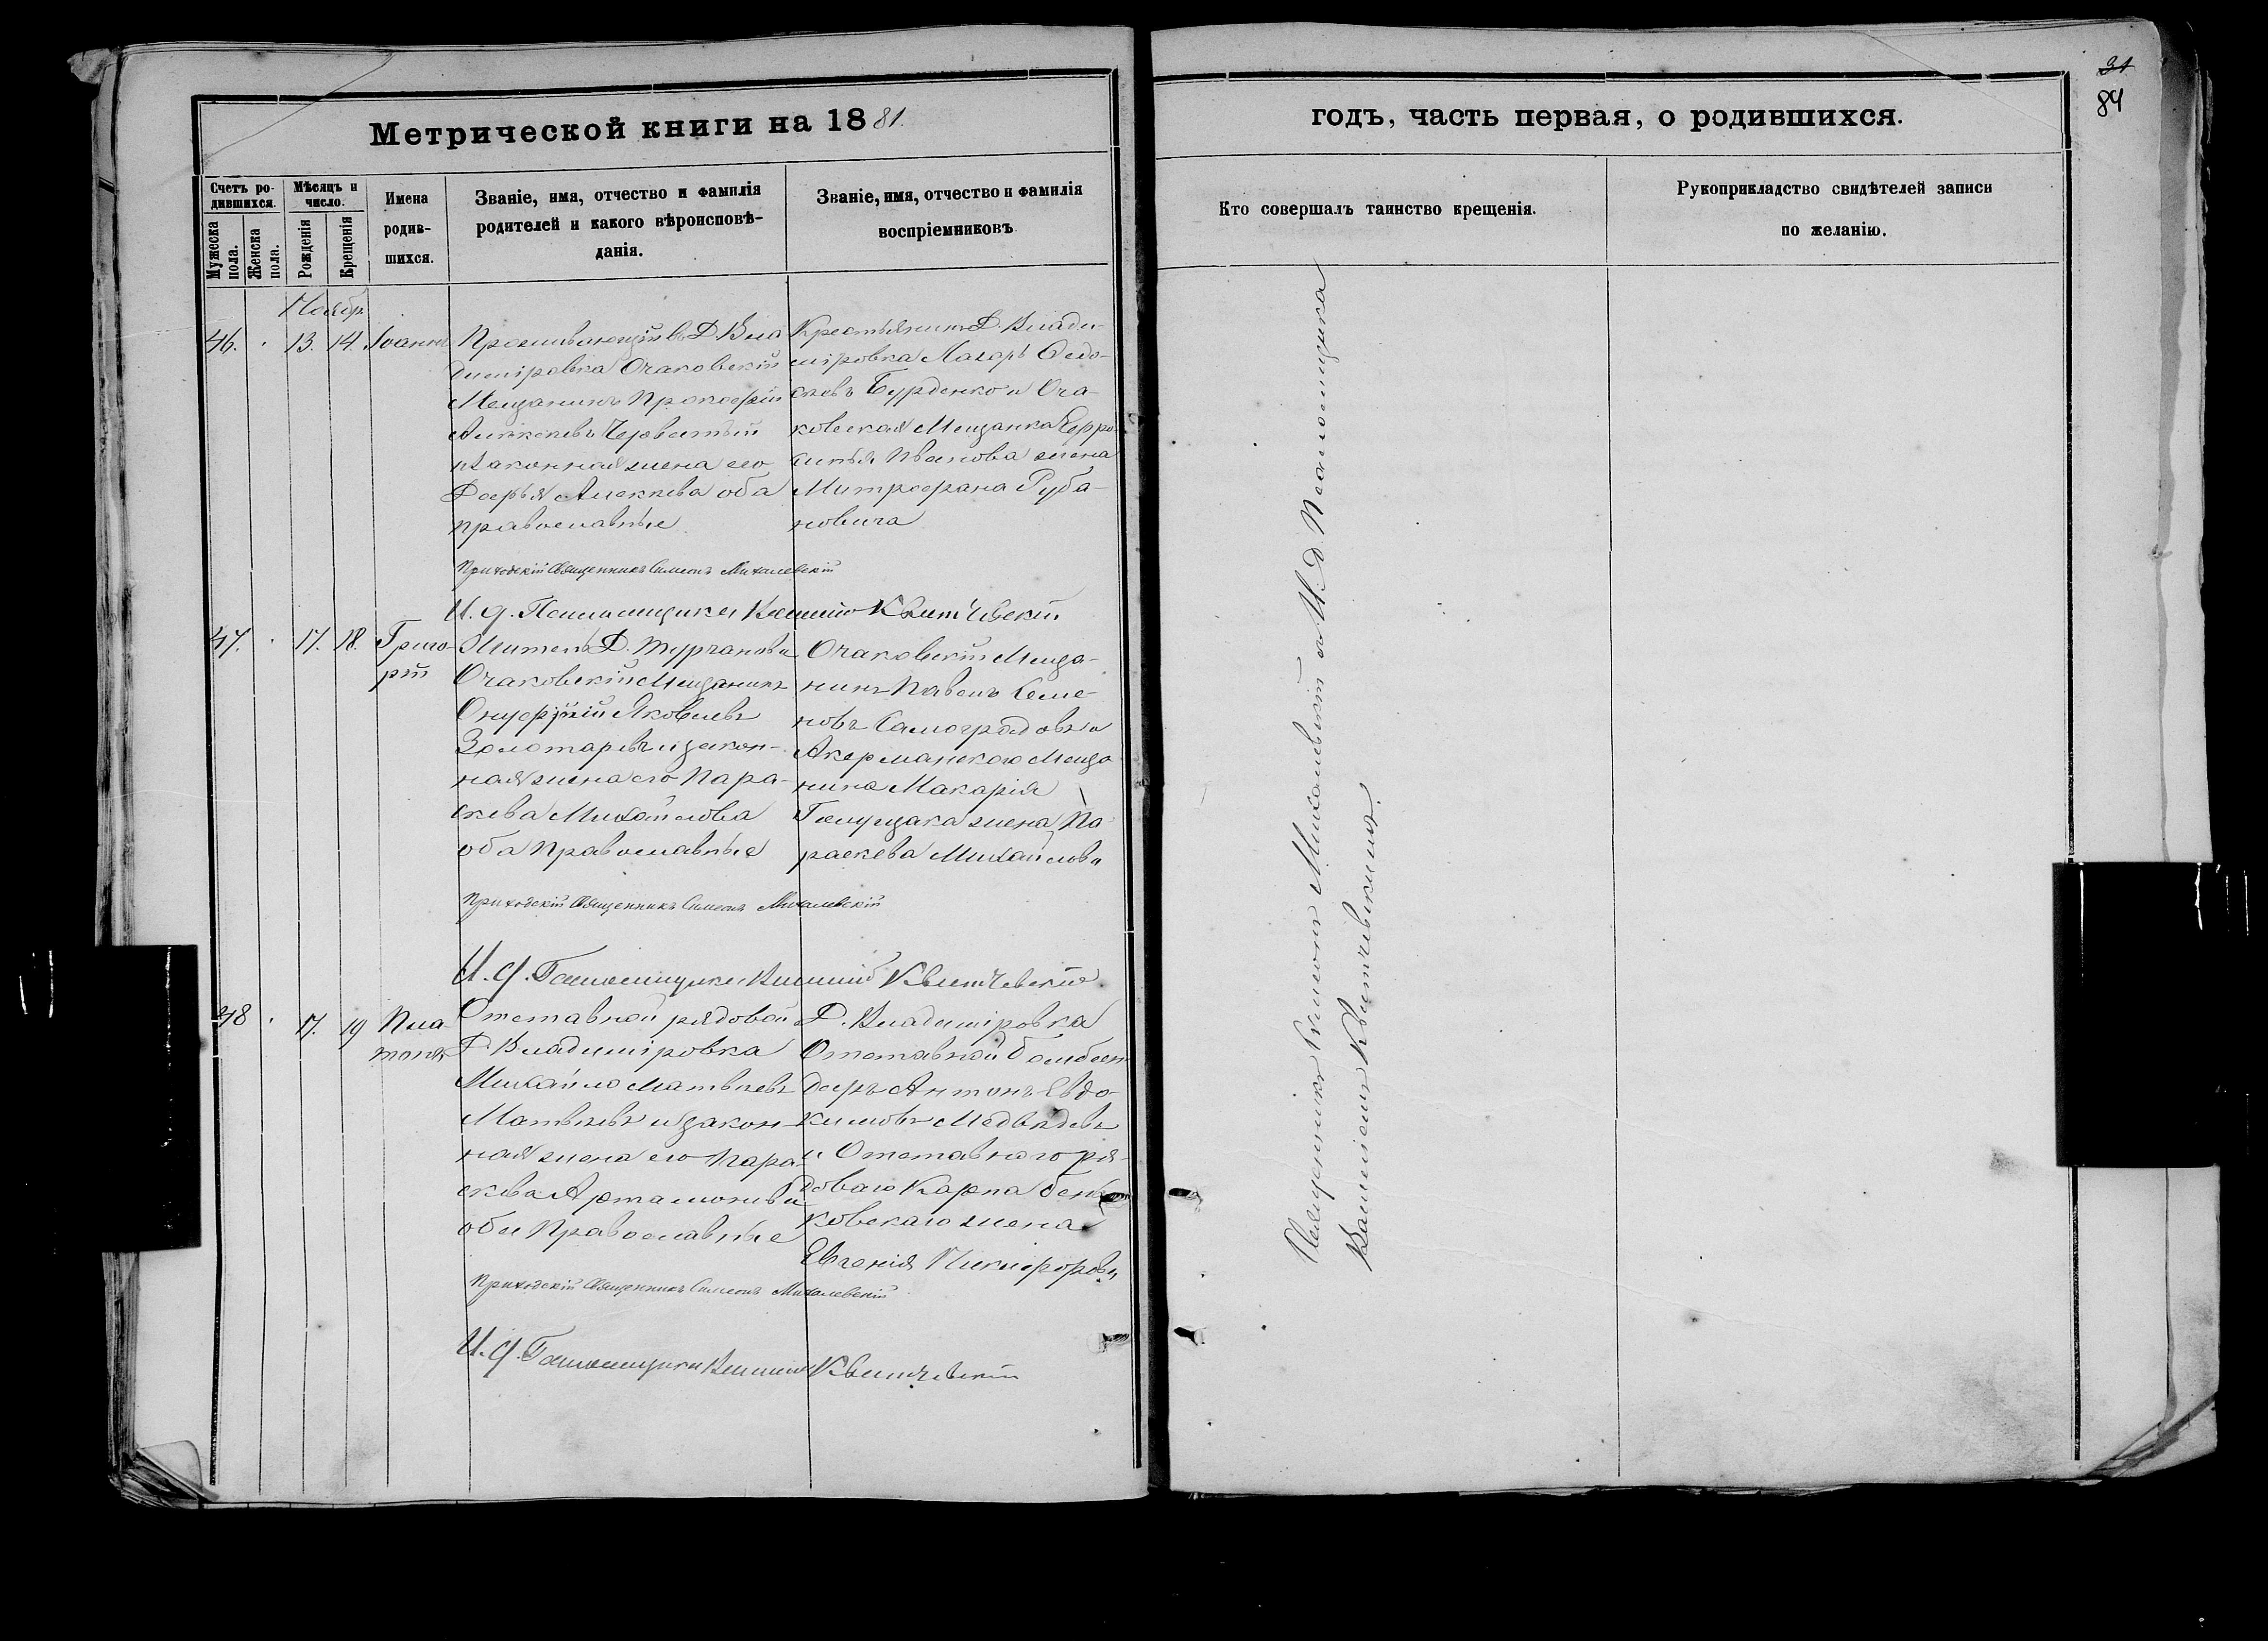 31
84
Метрической книги на 1881.
годъ, часть первая, о родившихся.
Счетъ ро-
дившихся.
Мужеска пола.
Женска пола.
Мѣсяцъ и
число.
Рожденія
Крещенія
Имена
родив-
шихся.
Званіе, имя, отчество и фамилія
родителей и какого вѣроисповѣ-
данія.
Званіе, имя, отчество и фамилія
воспріемниковъ
Кто совершалъ таинство крещенія.
Рукоприкладство свидѣтелей записи
по желанію.
Ноябр
46. 13. 14. Іоаннъ
Проживающій въ Д. Вла
диміровка Очаковскій
Мещанинъ Прокофій
Алексѣевъ
и законная жена его
Алексѣева оба
православные
Крестьянинъ Д. Влади-
міровка Лазарь Ѳедо-
Бурденко и Оча-
ковская Мещанка Евфро-
синья Иванова жена
Митрофана Руба-
новича
Приходскій Священникъ Симеонъ Михалевскій
И. д. Псаломщика Квитчевскій
47. 17. 18. Григо-
рій
Житель Д.
Очаковскій Мещанинъ
Онуфрій Яковлевъ
Золотаревъ и закон-
ная жена его Пара-
скева Михайлова
оба православные
Очаковскій Меща-
нинъ Павелъ Семе-
новъ Самоградовъ и
Акерманского Меща
нина Макарія
жена Па-
раскева Михайлова
Приходскій Священникъ Симеонъ Михалевскій
И. д. Псаломщика Квитчевскій
48 17. 19 Пла-
тонъ
Отставной рядовой
Д. Владиміровка
Михайло Матвѣевъ
Матвѣевъ и закон-
ная жена его Пара-
скева Артамонова
оба Православные
Д. Владиміровка
Отставной бомбан-
деръ Антонъ Евдо-
кимовъ Медвѣдевъ
и Отставного ря-
доваго Карпа
ковскаго жена
Евгенія Никифорова
Приходскій Священникъ Симеонъ Михалевскій
И. д. Псаломщика Квитчевскій
Священникъ Симеонъ Михалевскій и И. д. Псаломщика
Квитчевскій